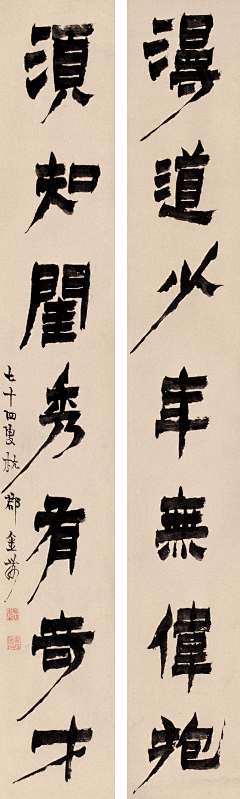 漫道少年無偉抱
湏知閨秀有奇才
七十四叟杭郡金農